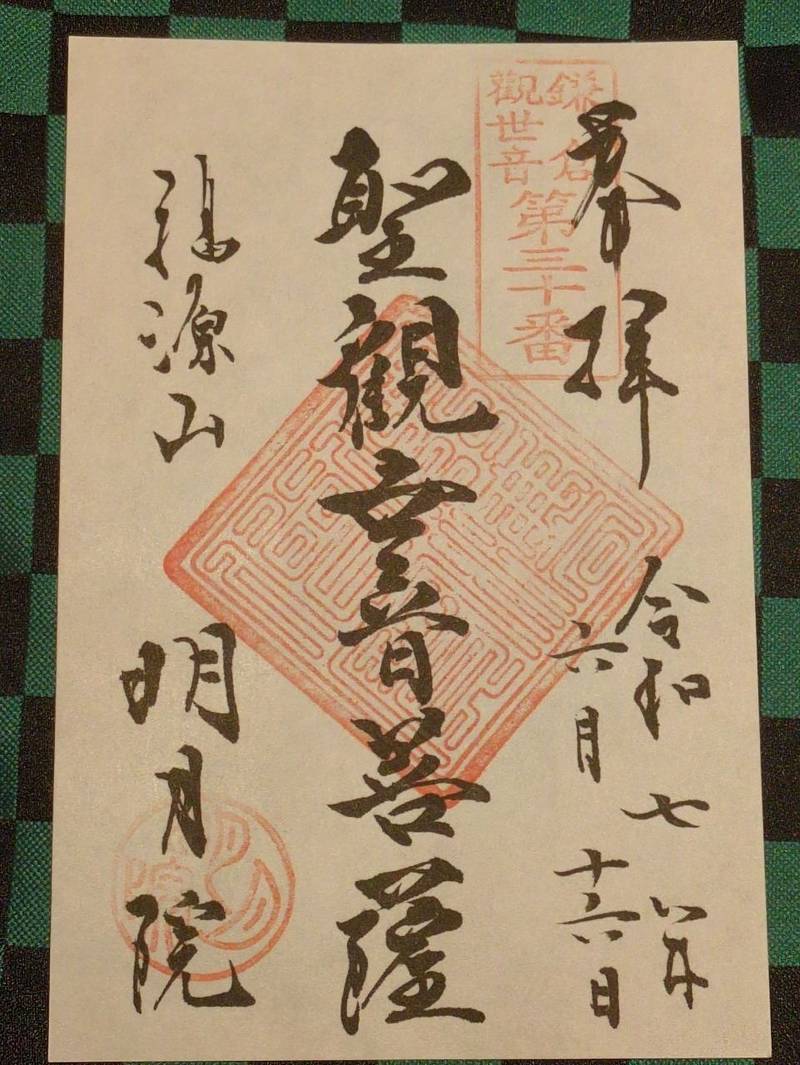 鎌倉
觀世音
第三十番
奉拝
令和七年
六月十六日
聖観世音菩薩
福源山
明月院